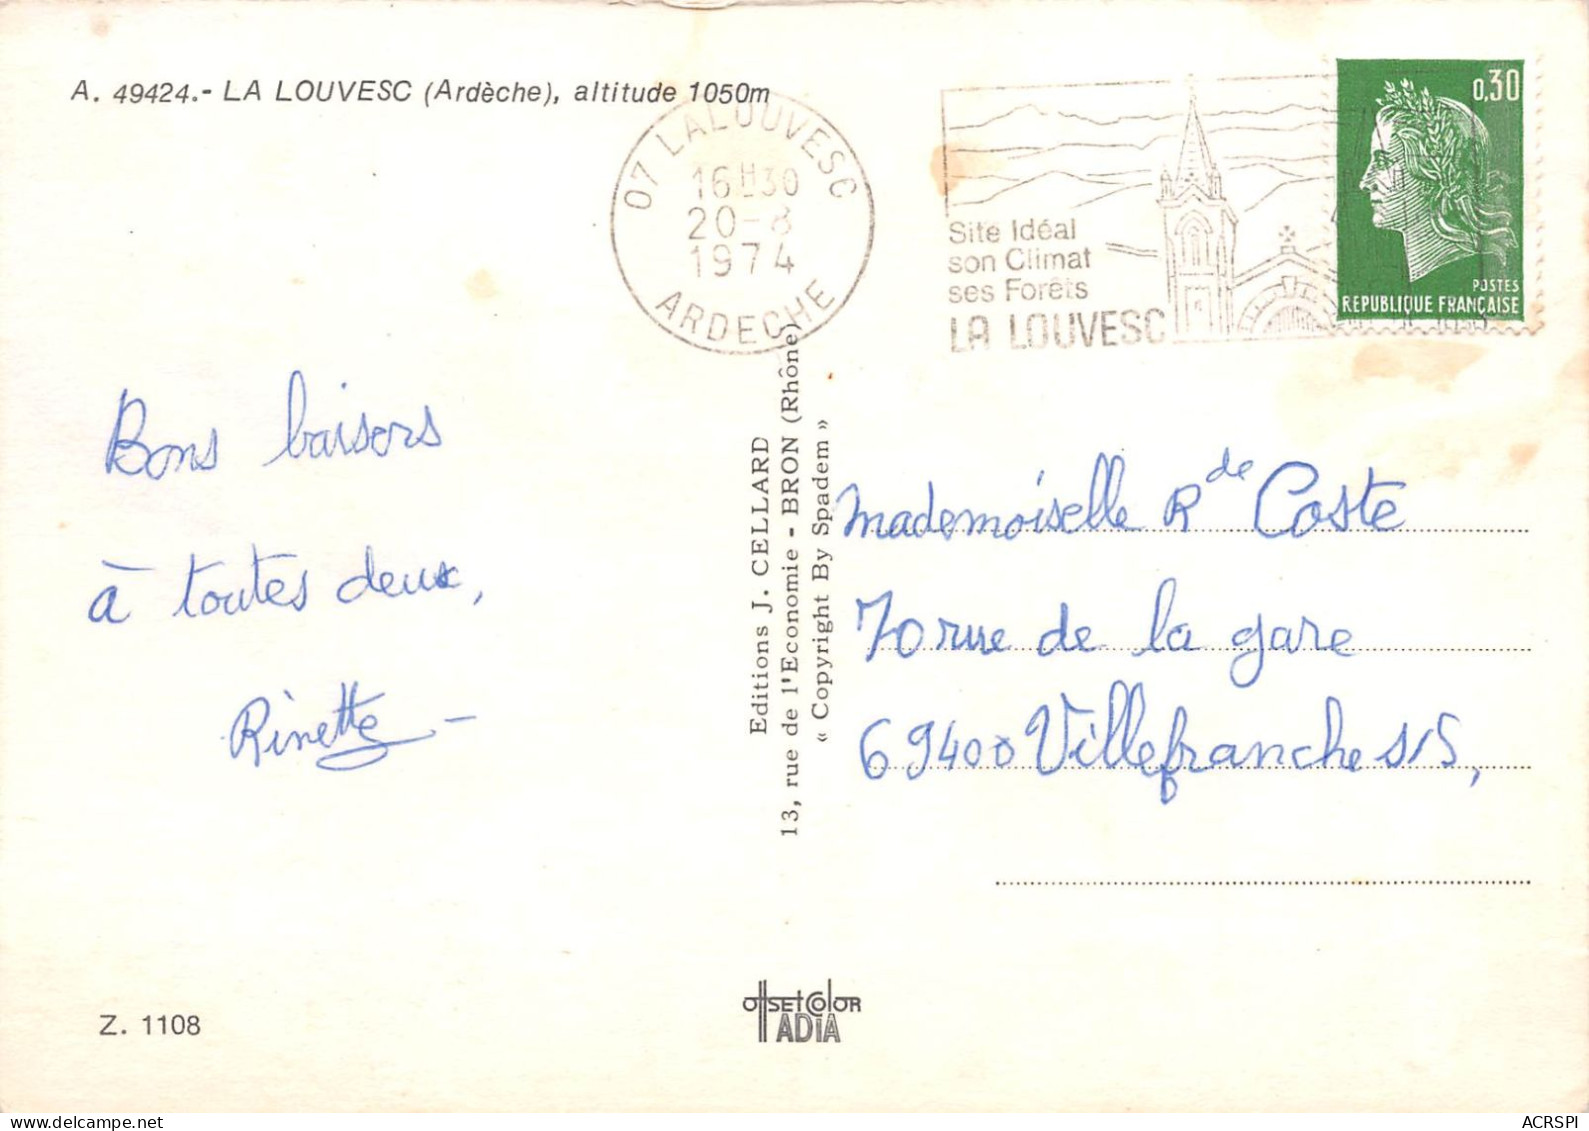 A. 49424.- LA LOUVESC (Ardèche), altitude 1050m
07 LALOUVESC
16H30
20-8
1974
ARDECHE
Site Idéal
son Climat
ses Forêts
LA LOUVESC
0,30
POSTES
REPUBLIQUE FRANÇAISE
Bons baisers
à toutes deux,
Rinette -
Editions J. CELLARD
13, rue de l'Economie - BRON (Rhône)
« Copyright By Spadem »
Mademoiselle R de Coste
70 rue de la gare
69400 Villefranche s/S,
Z. 1108
OffSEt COlOR
IADIA
ACRSPI